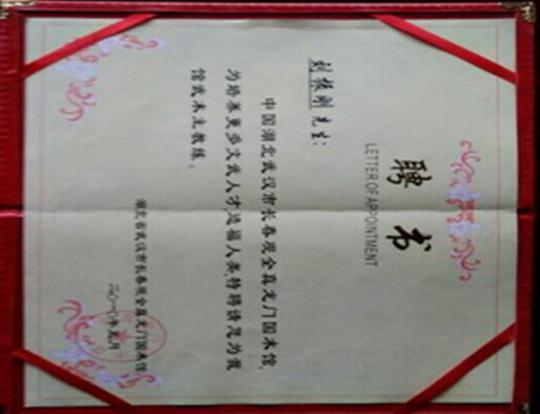 聘书
LETTER OF APPOINTMENT
刘振刚先生:
中国湖北武汉市长春观全真龙门国术馆,
为培养更多文武人才,造福人类,特聘请您为我
馆武术主教练。
湖北省武汉市长春观全真龙门国术馆
二〇一〇年九月